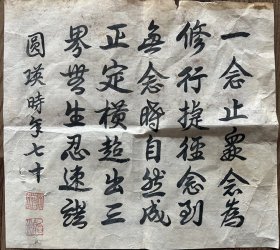 一念止眾念為
修行捷徑念到
無念時自然成
正定橫超出三
界無生忍速證
圓瑛時年七十